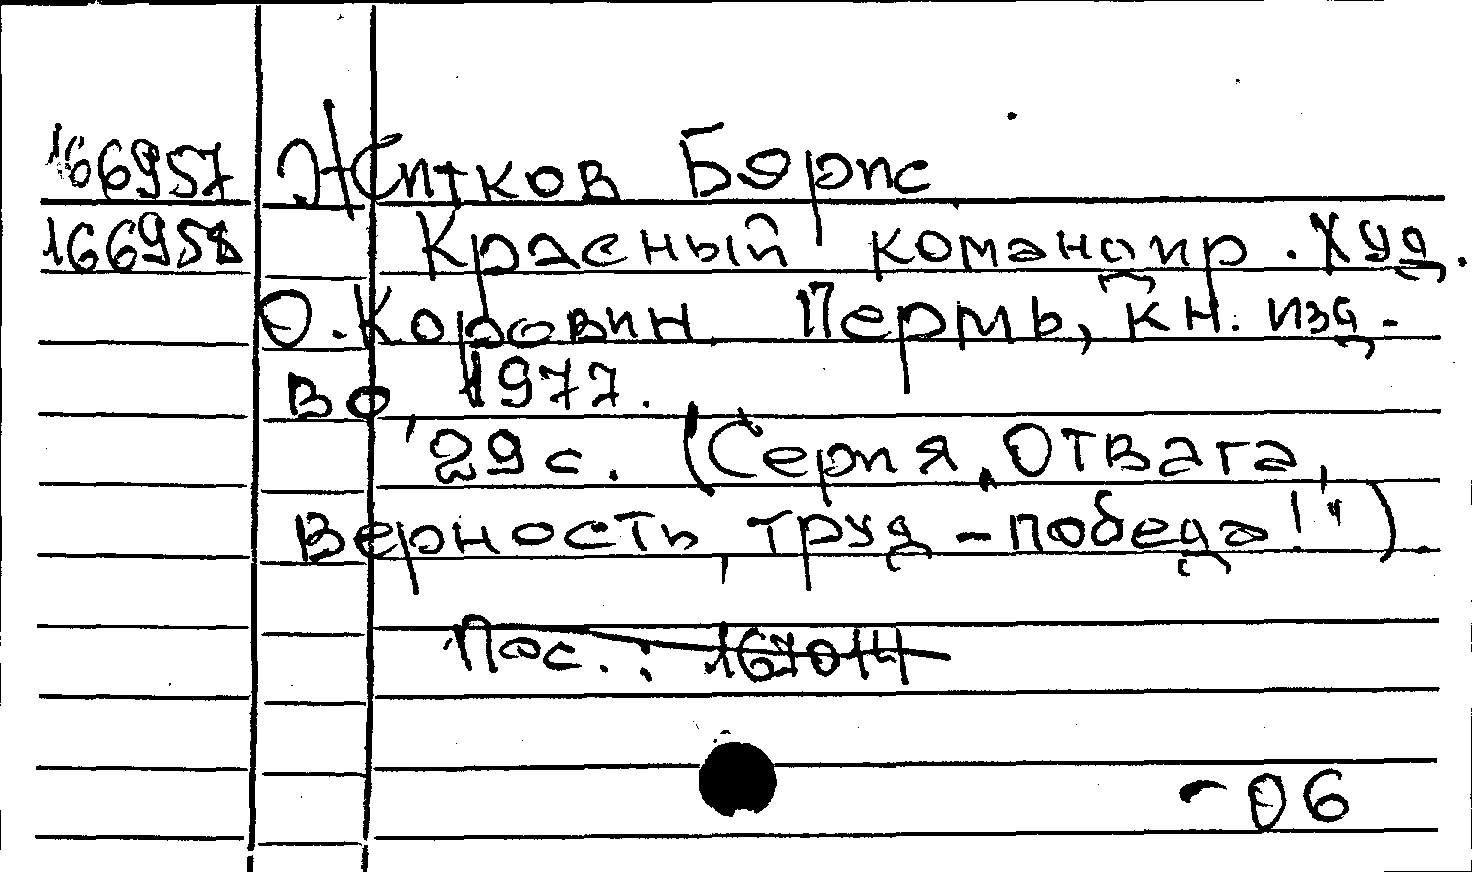 166957 Житков Борис
166958 Красный командир. Худ.
О. Коровин. Пермь, кн. изд-
во, 1977.
29 с. (Серия „Отвага,
верность, труд - победа!").
Пос.: 167014
- 06